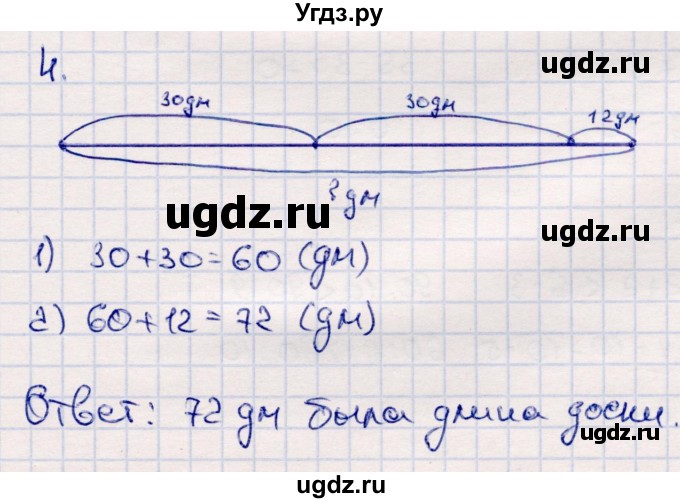 Угдз.ру
ugdz.ru
4.
30дм 30дм 12дм
? дм
ugdz.ru
ugdz.ru
1) 30+30=60 (дм)
2) 60+12=72 (дм)
ugdz.ru
Ответ: 72 дм была длина доски.
ugdz.ru
ugdz.ru